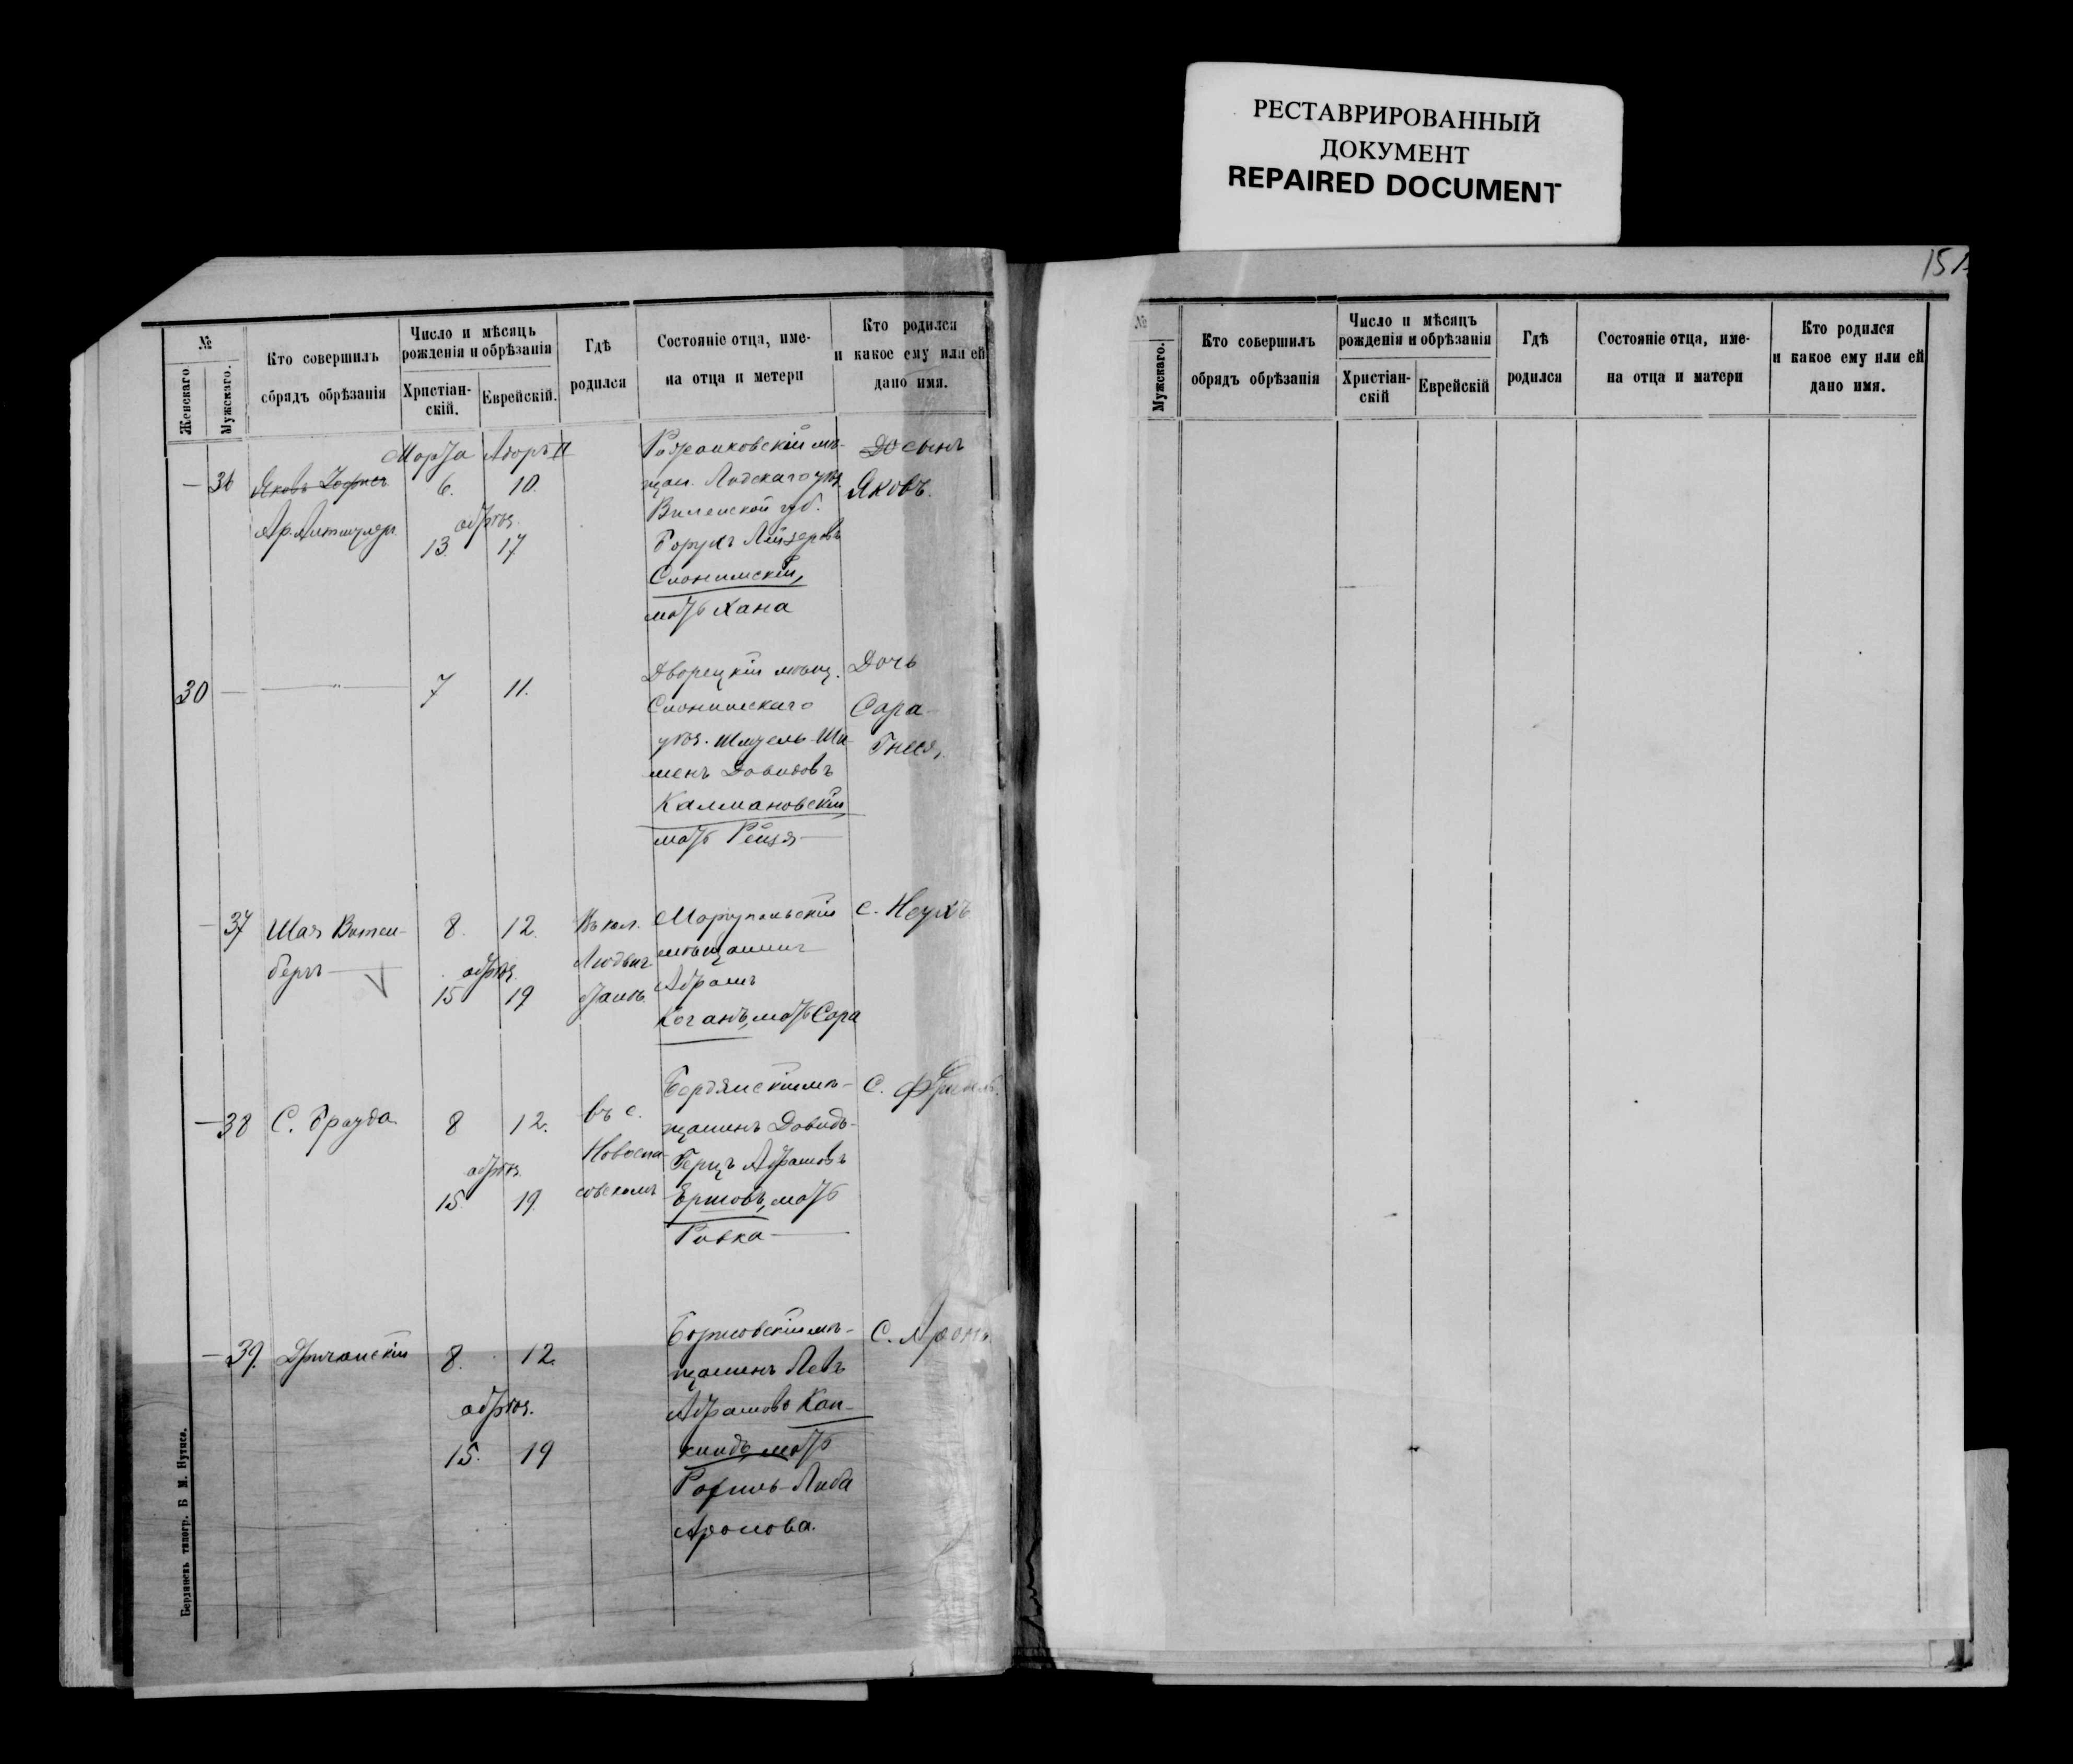 РЕСТАВРИРОВАННЫЙ
ДОКУМЕНТ
REPAIRED DOCUMENT
151
№
Женскаго.
Мужскаго.
Кто совершилъ
обрядъ обрѣзанія
Число и мѣсяцъ
рожденія и обрѣзанія
Христіан-
скій.
Еврейскій.
Гдѣ
родился
Состояніе отца, име-
на отца и метери
Кто родился
и какое ему или ей
дано имя.
Марта Адаръ II
— 36
6. 10.
обрѣз.
13. 17
щан. Лидскаго уѣз.
Виленской губ.
Борухъ Лейзеровъ
Слонимскій,
мать Хана
сынъ
Яковъ.
30 —
7 11.
Дворецкій мѣщ.
Слонимскаго
уѣз. Шмуель-Ши-
менъ Довидовъ
Калмановскій
мать Рейзя
Дочь
Сара
Гнеся,
— 37 Шая Витен-
бергъ
8. 12.
обрѣз.
15 19
Въ кол.
Маріупольскій
мѣщанинъ
Абрамъ
Коганъ, мать Сара
С. Неухъ
— 38 С. Брауда
8 12.
обрѣз.
15 19.
въ с.
Новоспа-
совскомъ
Бердянскій мѣ-
щанинъ Довидъ-
Герцъ Абрамовъ
Ершовъ, мать
Ривка
С.
— 39.
8. 12.
обрѣз.
15. 19
Борисовскій мѣ-
щанинъ Лейб
Абрамовъ Кап-
киндъ, мать
Рахиль-Либа
Аронова.
С. Аронъ.
Бердянскъ типогр. Б М.
№
Мужскаго.
Кто совершилъ
обрядъ обрѣзанія
Число и мѣсяцъ
рожденія и обрѣзанія
Христіан-
скій
Еврейскій
Гдѣ
родился
Состояніе отца, име-
на отца и матери
Кто родился
и какое ему или ей
дано имя.